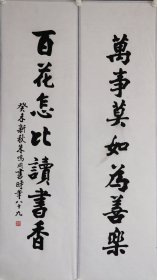 萬事莫如為善樂
百花怎比讀書香
癸未新秋朱鳴岡書時年八十九